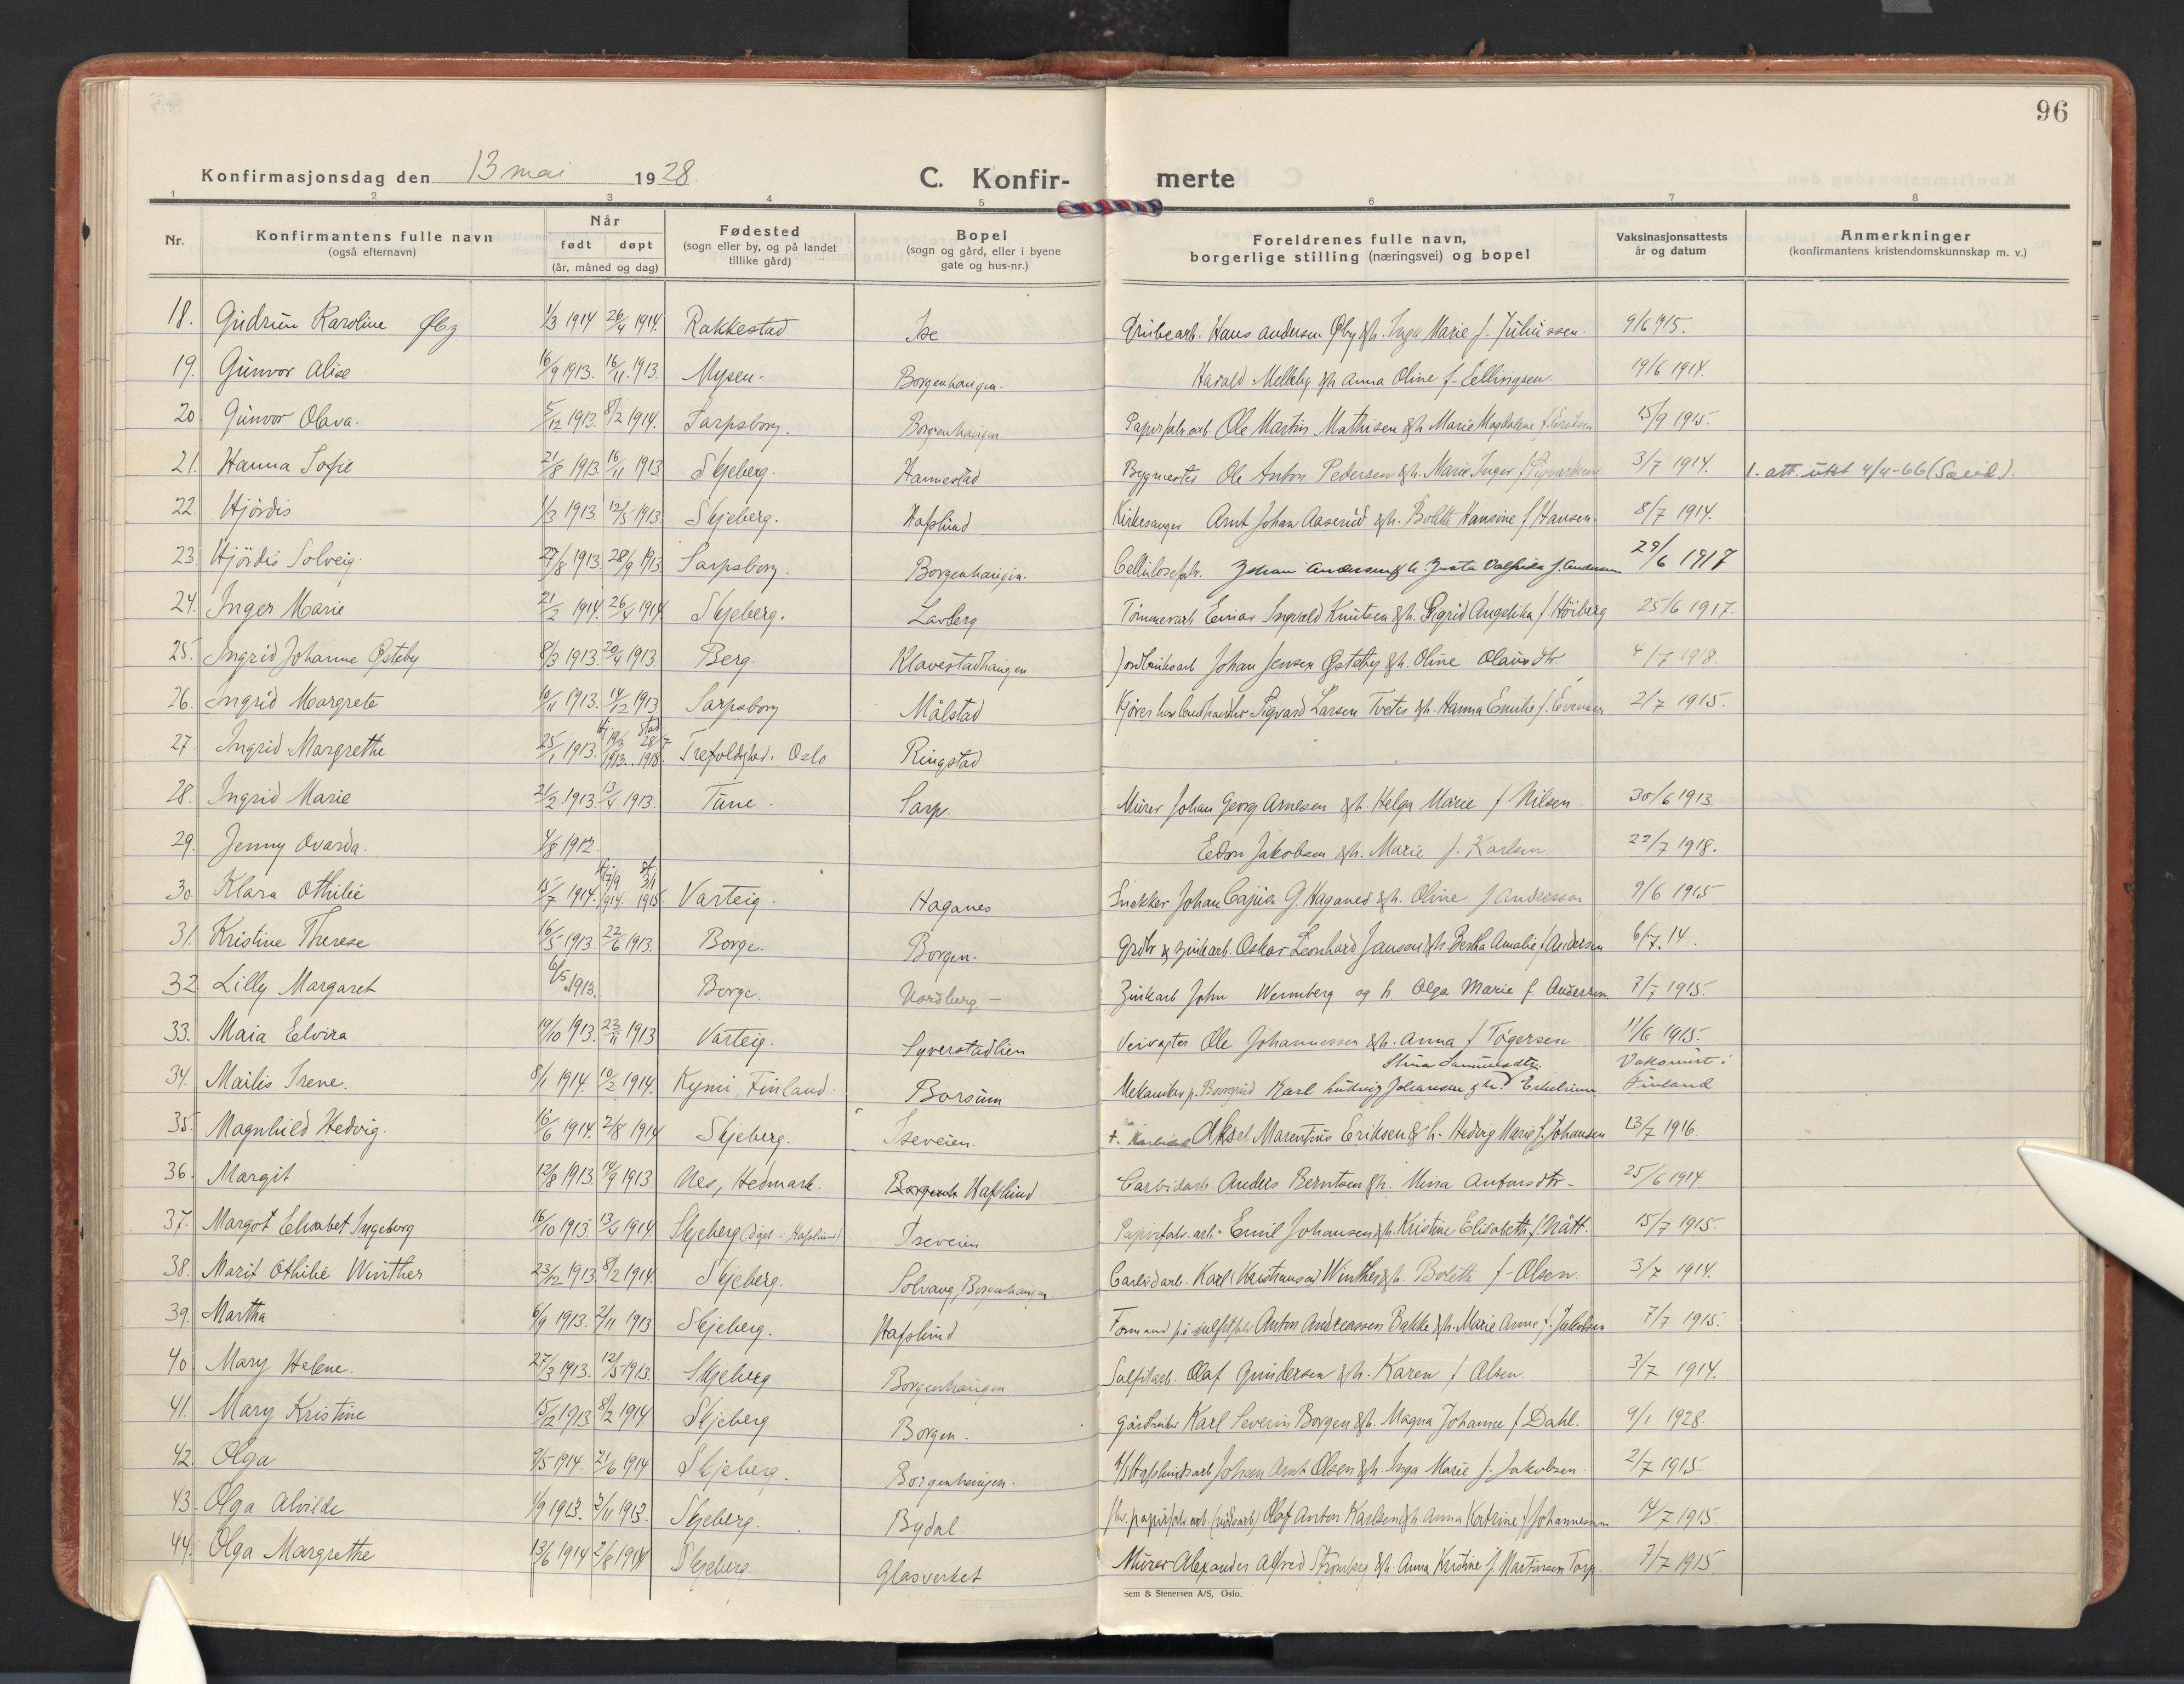 96
Konfirmasjonsdag den 13 mai 1928.
C. Konfir- merte
1 2 3 4 5 6 7 8
Nr. Konfirmantens fulle navn (også efternavn) Når født døpt (år, måned og dag) Fødested (sogn eller by, og på landet tillike gård) Bopel (sogn og gård, eller i byene gate og hus-nr.) Foreldrenes fulle navn, borgerlige stilling (næringsvei) og bopel Vaksinasjonsattests år og datum Anmerkninger (konfirmantens kristendomskunnskap m. v.)
18. Gudrun Karoline Øby 1/3 1914 26/4 1914. Rakkestad Ise Grubearb. Hans Andersen Øby & h. Inga Marie f. Juliussen. 9/6 1915.
19. Gunvor Alise 16/9 1913. 16/11. 1913. Mysen. Borgenhaugen. Harald Melleby & h. Anna Oline f. Eellingsen. 19/6 1914.
20. Gunvor Olava. 5/12 1913. 8/2 1914. Sarpsborg. Borgenhaugen Papirfabr.arb. Ole Martin Mathisen & h. Marie Magdalene f. Eriksen 15/9 1915.
21. Hanna Sofie 21/8 1913. 16/11 1913. Skjeberg. Hannestad Bygmester Ole Anton Pedersen & h. Marie Inger f. 3/7 1914. 1. att. utst 4/4-66
22. Hjördis 1/3 1913. 12/5 1913. Skjeberg. Hafslund Kirkesanger Arnt Johan Aaserud & h. Bolette Hansine f. Hansen. 8/7 1914.
23. Hjördis Solveig. 27/8 1913. 28/9 1913 Sarpsborg. Borgenhaugen. Cellulosefabr. Johan Andersen & h. f. Andersen 29/6 1917
24. Inger Marie 21/2 1914. 26/4 1914. Skjeberg. Lavberg Tömmerarb Einar Ingvald Knutsen & h. Sigrid Angelika f. Höiberg 25/6 1917.
25. Ingrid Johanne Østeby 8/3 1913. 20/4 1913 Berg. Klavestadhaugen Jordbruksarb Johan Jensen Østeby & h. Oline Olausdtr. 4/7 1918.
26. Ingrid Margrete 10/11 1913. 14/12 1913. Sarpsborg Målstad Kjører hos landhandler Sigvard Larsen Tveter & h. Hanna Emilie f. Evensen 2/7 1915.
27. Ingrid Margrethe 25/1 1913. Hj 19/3 1913. stad 28/7 1918. Trefoldighed. Oslo Ringstad
28. Ingrid Marie 21/2 1913. 13/4 1913. Tune. Sarp. Murer Johan Georg Arnesen & h. Helga Marie f. Nilsen. 30/6 1913.
29. Jenny Ovarda. 4/8 1912. Edon Jakobsen & h. Marie f. Karlsen. 22/7 1918.
30. Klara Othilie 15/7 1914. Hj 17/9 1914. st 3/1 1915. Varteig. Haganes Snekker Johan G. Haganes & h. Oline f. Andersson 9/6 1915
31. Kristine Therese 16/5 1913. 22/6 1913. Borge. Borgen. Grdbr & zinkarb. Oskar Leonhard Jansen & h. Bertha Amalie f. Andersen 6/7. 14.
32. Lilly Margaret 6/5 1913. Borge. Nordberg - Zinkarb John Wennberg og h. Olga Marie f. Andersen 7/7 1915.
33. Maia Elvira 19/10 1913. 23/11 1913 Varteig. Syverstadlien Veivogter Ole Johannessen & h. Anna f. Tögersen 11/6 1915.
34. Mailis Irene. 8/1 1914. 10/2 1914. Kymi, Finland. Borsum Mekaniker p. Borregård Karl Ludvig Johansen & h. Stina Samuelsdtr. Vaksinert i Finland
35. Magnhild Hedvig. 16/6 1914. 2/8 1914 Skjeberg. Iseveien. Aksel Marentius Eriksen & h. Hedvig Marie f. Johansen 13/7 1916.
36. Margit 12/8 1913. 14/9 1913 Nes, Hedmark. Borgenh Hafslund Carbidarb. Anders Berntsen & h. Mina Antonsdtr. 25/6 1914
37. Margot Elisabet Ingeborg 16/10 1913. 13/4 1914. Skjeberg (døpt i Hafslund) Iseveien Papirfabr. arb. Emil Johansen & h. Kristine Elisabeth f. Nätt. 15/7 1915.
38. Marit Othilie Winther 23/12 1913. 8/2 1914. Skjeberg. Solvang, Borgenhaugen. Carbidarb. Karl Kristiansen Winther & h. Bolette f. Olsen. 3/7 1914.
39. Martha 6/9 1913. 2/11 1913 Skjeberg. Hafslund Formand på sulfitfabr. Anton Andreassen Bakke & h. Marie Anne f. Jakobsen 7/7 1915.
40. Mary Helene. 27/3 1913. 12/5 1913. Skjeberg Borgenhaugen Sulfitarb. Olaf Gundersen & h. Karen f. Olsen. 3/7 1914.
41. Mary Kristine 15/12 1913 8/2 1914 Skjeberg Borgen. Gårdbruker Karl Severin Borgen & h. Magna Johanne f. Dahl. 9/1 1928.
42. Olga 9/5 1914. 21/6 1914 Skjeberg. Borgenhaugen. A/S Hafslundsarb Johan Arnt Olsen & h. Inga Marie f. Jakobsen. 2/7 1915.
43. Olga Alvilde 1/9 1913. 2/11 1913. Skjeberg. Bydal papirfabr. arb. Olaf Anton Karlsen & h. Anna Katrine f. Johannessen 14/7 1915.
44. Olga Margrethe 13/6 1914 2/8 1914 Skjeberg. Glasverket Murer Alexander Alfred Strömberg & h. Anna Kristine f. Martinsen Torp. 7/7 1915.
Sem & Stenersen A/S, Oslo.